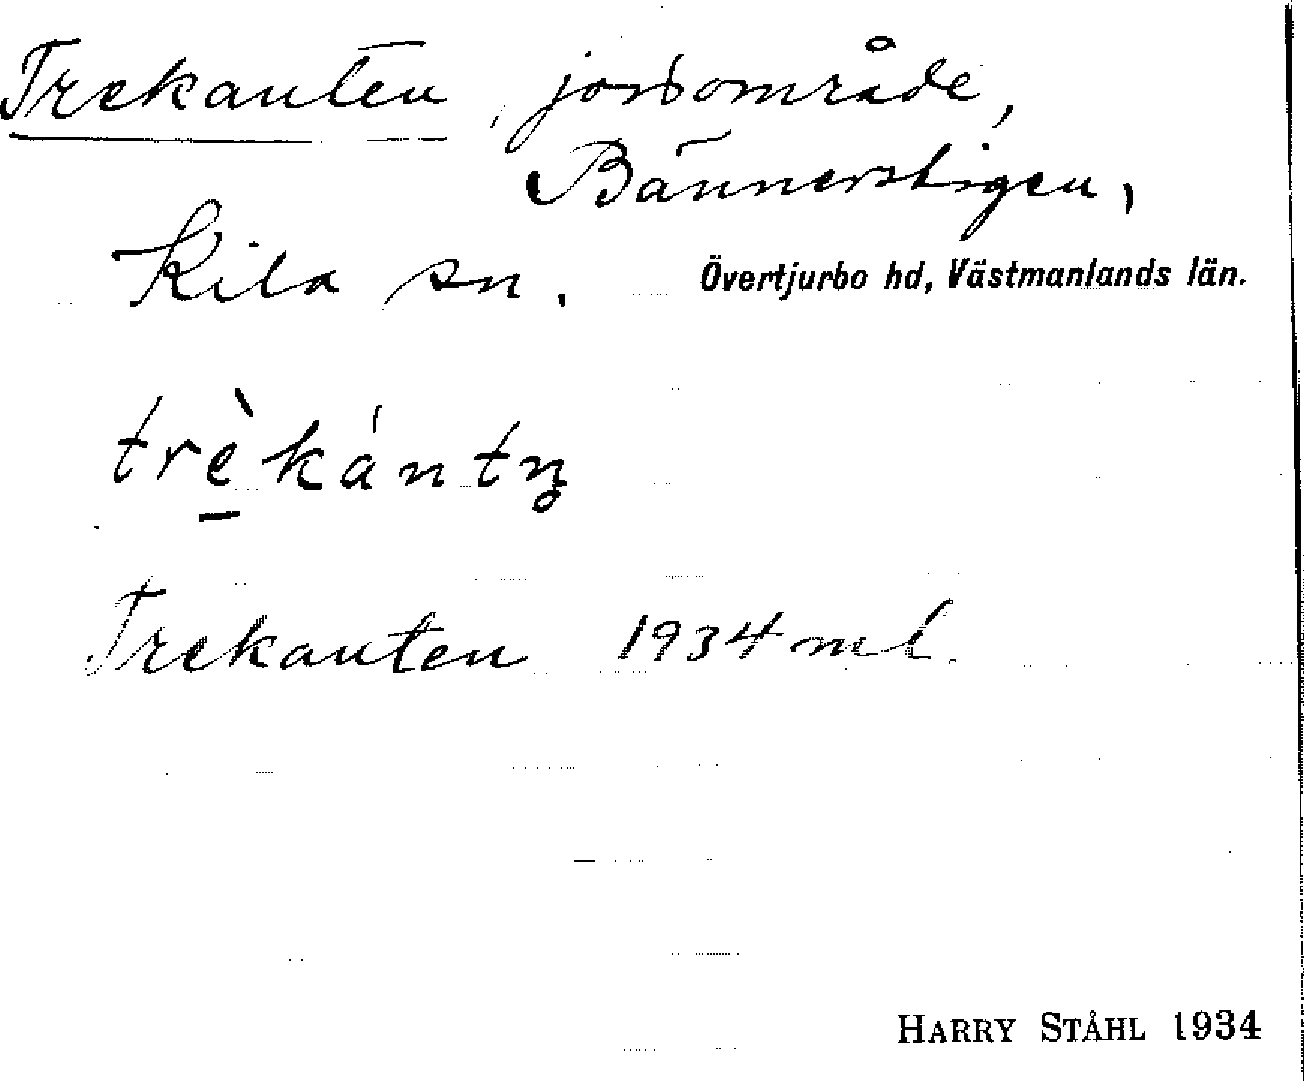 Trekanten, jordområde,
Bännerstigen,
Kila sn. Övertjurbo hd, Västmanlands län.
trè̱kántn̥
Trekanten 1934 ml.
HARRY STÅHL 1934